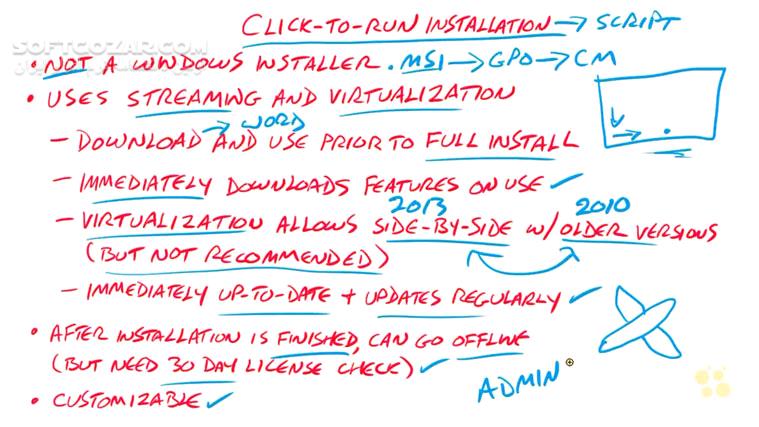 SOFTGOZAR.COM
CLICK-TO-RUN INSTALLATION → SCRIPT
• NOT A WINDOWS INSTALLER .MSI → GPO → CM
• USES STREAMING AND VIRTUALIZATION
→ WORD
– DOWNLOAD AND USE PRIOR TO FULL INSTALL
– IMMEDIATELY DOWNLOADS FEATURES ON USE ✓
2013 2010
– VIRTUALIZATION ALLOWS SIDE-BY-SIDE W/ OLDER VERSIONS
(BUT NOT RECOMMENDED)
– IMMEDIATELY UP-TO-DATE + UPDATES REGULARLY ✓
• AFTER INSTALLATION IS FINISHED, CAN GO OFFLINE
(BUT NEED 30 DAY LICENSE CHECK) ✓
ADMIN
• CUSTOMIZABLE ✓